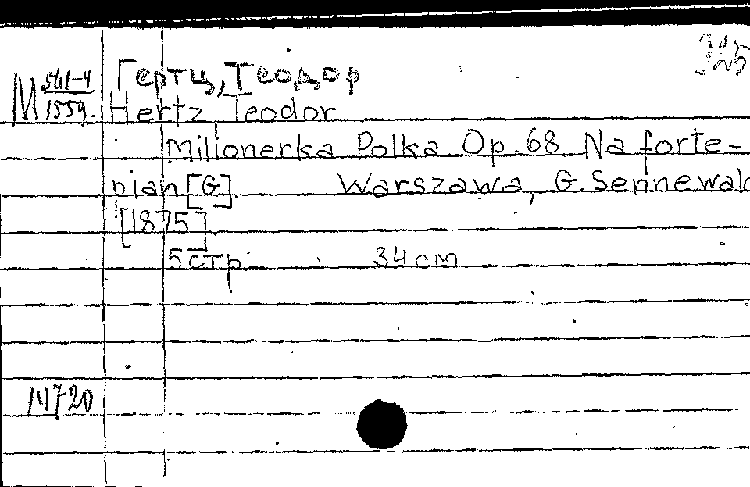 325
М 561-4
1559.
Гертц, Теодор
Hertz Teodor
Milionerka Polka Op. 68 Na forte-
pian [G]. Warszawa, G. Sennewald
[1875]
5 стр. 34 cm
14720